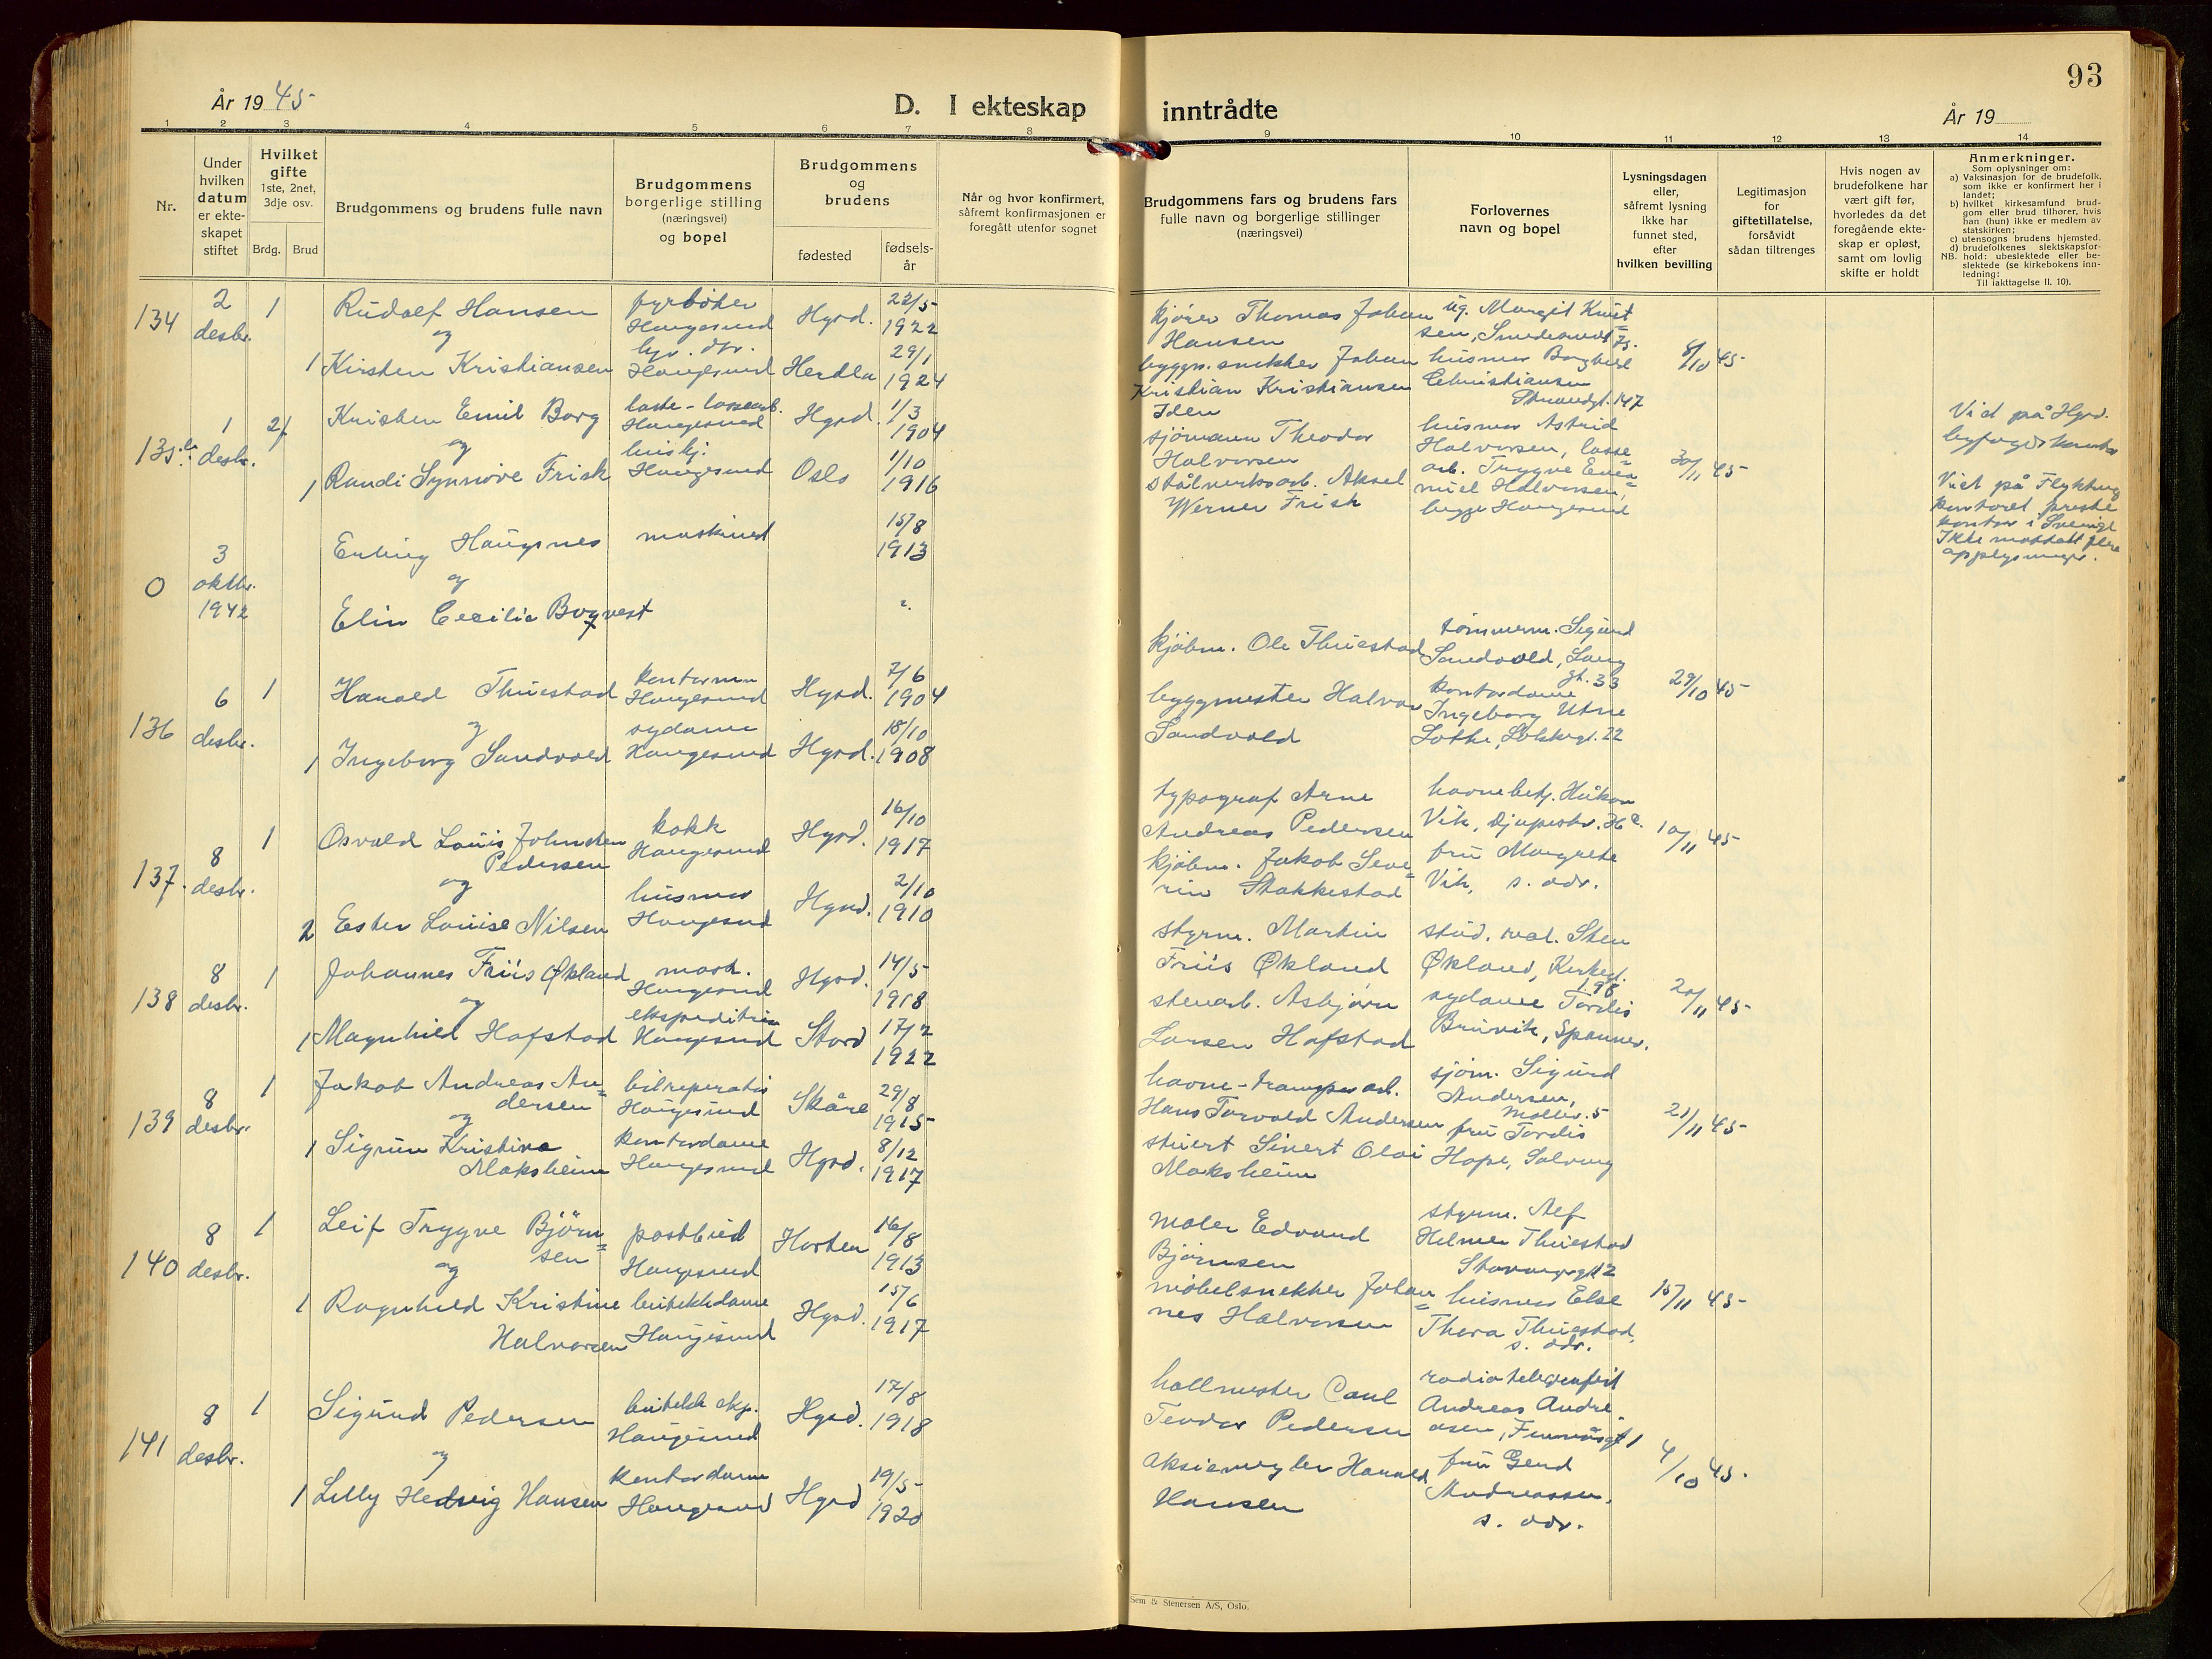 År 1945
D. I ekteskap inntrådte
År 19
93
1 2 3 4 5 6 7 8 9 10 11 12 13 14
Nr.
Under
hvilken
datum
er ekte-
skapet
stiftet
Hvilket
gifte
1ste, 2net,
3dje osv.
Brdg. Brud
Brudgommens og brudens fulle navn
Brudgommens
borgerlige stilling
(næringsvei)
og bopel
Brudgommens
og
brudens
fødested
fødsels-
år
Når og hvor konfirmert,
såfremt konfirmasjonen er
foregått utenfor sognet
Brudgommens fars og brudens fars
fulle navn og borgerlige stillinger
(næringsvei)
Forlovernes
navn og bopel
Lysningsdagen
eller,
såfremt lysning
ikke har
funnet sted,
efter
hvilken bevilling
Legitimasjon
for
giftetillatelse,
forsåvidt
sådan tiltrenges
Hvis nogen av
brudefolkene har
vært gift før,
hvorledes da det
foregående ekte-
skap er opløst,
samt om lovlig
skifte er holdt
Anmerkninger.
Som oplysninger om:
a) Vaksinasjon for de brudefolk,
som ikke er konfirmert her i
landet;
b) hvilket kirkesamfund brud-
gom eller brud tilhører, hvis
han (hun) ikke er medlem av
statskirken;
c) utensogns brudens hjemsted.
d) brudefolkenes slektskapsfor-
NB. hold: ubeslektede eller be-
slektede (se kirkebokens inn-
ledning:
Til iakttagelse II. 10).
134
2
desbr.
1
Rudolf Hansen
og
1 Kirsten Kristiansen
fyrbøter
Haugesund
Haugesund
Hgsd.
22/5
1922
Herdla
29/1
1924
kjører Thomas Johan
Hansen
byggn.snekker Johan
Kristian Kristiansen
Iden
ug. Margit Knut
sen,
husmor Borghild
Christiansen
Strandgt. 147
8/10 45
135
1
desbr.
2
Kristen Emil Borg
og
1 Randi Synnøve Frisk
laste-lossearb.
Haugesund
Haugesund
Hgsd.
1/3
1904
Oslo
1/10
1916
sjömann Theodor
Halvorsen
Stålverksarb. Aksel
Werner Frisk
husmor Astrid
Halvorsen, losse
arb. Trygve
Halvorsen,
begge Haugesund
30/11 45
Viet på Hgsd.
0
3
oktbr.
1942
Erling Haugsnes
og
Elin Cecilie
maskinist
15/8
1913
?
Viet på
kontoret
kontor i Sverige
Ikke mottatt flere
136
6
desbr.
1
Harald Thuestad
og
1 Ingeborg Sandvold
kontorm
Haugesund
sydame
Haugesund
Hgsd.
7/6
1904
Hgsd.
18/10
1908
kjøbm. Ole Thuestad
byggmester Halvor
Sandvold
tömmerm. Sigurd
Sandvold, Lang
gt. 33
kontordame
Ingeborg Utne
29/10 45
137.
8
desbr.
1
Osvald Louis Johnsten
Pedersen
og
2 Ester Louise Nilsen
kokk
Haugesund
husmor
Haugesund
Hgsd.
16/10
1917
Hgsd.
2/10
1910
typograf Arne
Andreas Pedersen
kjøbm. Jakob Seve
rin Stakkestad
havnebetj. Håkon
Vik,
fru Margrete
Vik, s. adr.
10/11 45
138
8
desbr.
1
Johannes Friis Økland
og
1 Magnhild Hafstad
mask.
Haugesund
ekspeditrise
Haugesund
Hgsd.
14/5
1918
Stord
17/2
1922
styrm. Martin
Friis Økland
stenarb. Asbjørn
Larsen Hafstad
stud. real. Sten
Økland, Kirkegt.
198
sydame Tordis
Bruvik,
20/11 45
139
8
desbr.
1
Jakob Andreas An
dersen
og
1 Sigrun Kristine
Maksheim
bilreperatør
Haugesund
kontordame
Haugesund
Skåre
29/8
1915
Hgsd.
8/12
1917
havne-transportarb.
Hans Torvald Andersen
stuert Sivert Olai
Maksheim
sjøm. Sigurd
Andersen,
fru Tordis
Hope,
21/11 45
140
8
desbr.
1
Leif Trygve Björn
sen
og
1 Ragnhild Kristine
Halvorsen
postbud
Haugesund
butikkdame
Haugesund
Horten
16/8
1913
Hgsd.
15/6
1917
maler Edvard
Bjørnsen
möbelsnekker Johan
nes Halvorsen
styrm. Alf
Helmer Thuestad
husmor Else
Thora Thuestad,
s. adr.
15/11 45
141
8
desbr.
1
Sigurd Pedersen
og
1 Lilly Hedvig Hansen
butikk eksp.
Haugesund
kontordame
Haugesund
Hgsd.
17/8
1918
Hgsd
19/5
1920
hallmester Carl
Teodor Pedersen
aksjemegler Harald
Hansen
radiotelegrafist
Andreas Andre
asen,
fru Gerd
Andreassen,
s. adr.
4/10 45
Sem & Stenersen A/S, Oslo.